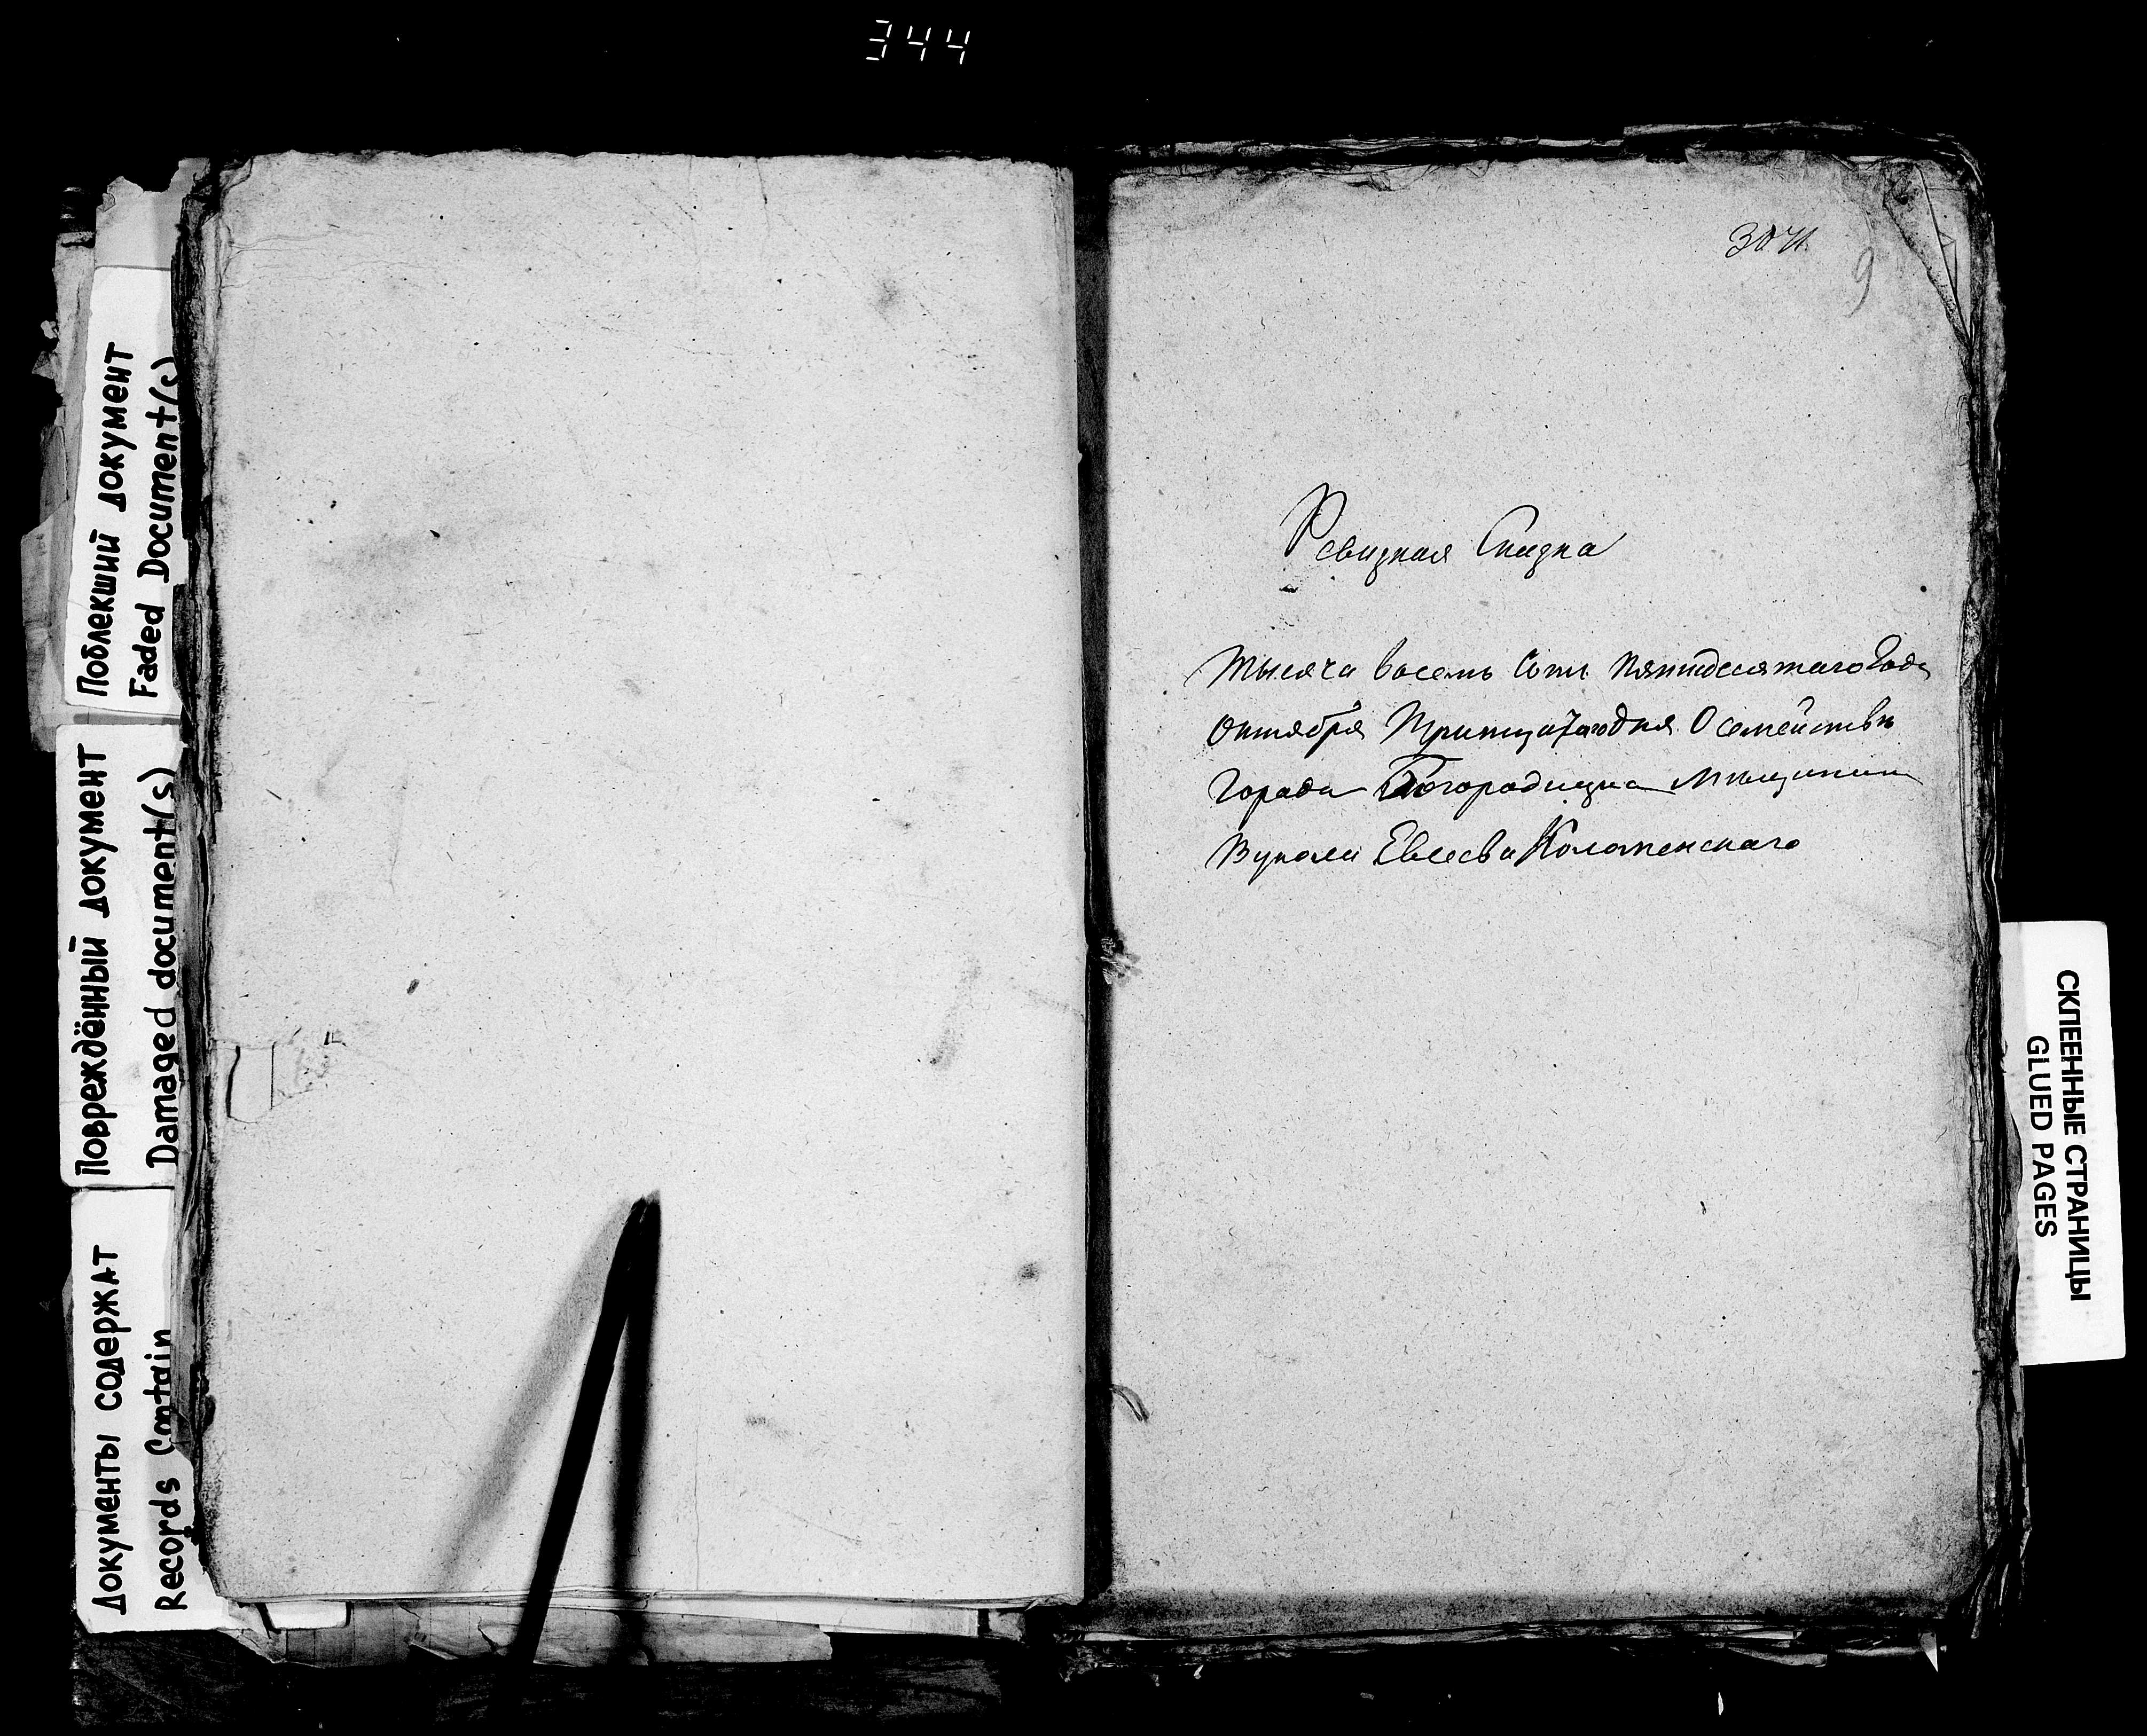 344
Поблекший документ
Faded Document(s)
Повреждённый документ
Damaged document(s)
Документы содержат
Records Contain
9
Ревизкая Сказка
Тысяча восемь Сотъ пятидесятаго Года
Октября дня О семействѣ
Города Богородицка Мѣщанина
Вукола Евсеева Коломенскаго
СКЛЕЕННЫЕ СТРАНИЦЫ
GLUED PAGES